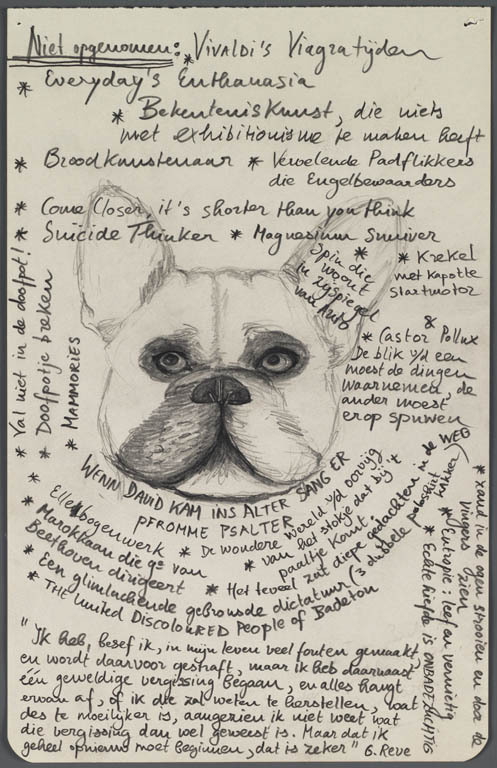 Niet opgenomen: * Vivaldi's Viagratijden
* Everyday's Enthanasia
* Bekenteniskunst, die niets
met exhibitionisme te maken heeft
* Broodkunstenaar * Voelende Padflikkers
die Engelbewaarders
* Come Closer, it's shorter than you think
* Suicide Thinker * Magnesium Sniver
* Spin die
woont
in zijspiegel
van auto
* Krekel
met kapotte
startmotor
* Castor & Pollux
De blik v/d een
moest de dingen
waarnemen, de
ander moest
erop spuwen
* Val niet in de doofpot!
* Doofpotje breken
* MAMMORIES
WENN DAVID KAM INS ALTER SANG ER
PFROMME PSALTER
* Ellebogenwerk
* De wondere wereld v/d oorvijg
* van het stokje dat bij 't
paaltje komt.
* Marokkaan die 9e van
Beethoven dirigeert
* Het teveel zat diepe gedachten in de WEG
* Een glimlachende gebronsde dictatuur (3 dubbele
* THE United DiscolouRED People of Badeton
* Echte liefde is ONBAATZUCHTIG
* Entropie: leef en vernietig
* zand in de ogen strooien en door de
vingers zien
"Ik heb, besef ik, in mijn leven veel fouten gemaakt,
en wordt daarvoor gestraft, maar ik heb daarnaast
één geweldige vergissing begaan, en alles hangt
ervan af, of ik die zal weten te herstellen, wat
des te moeilijker is, aangezien ik niet weet wat
die vergissing dan wel geweest is. Maar dat ik
geheel opnieuw moet beginnen, dat is zeker" G. Reve